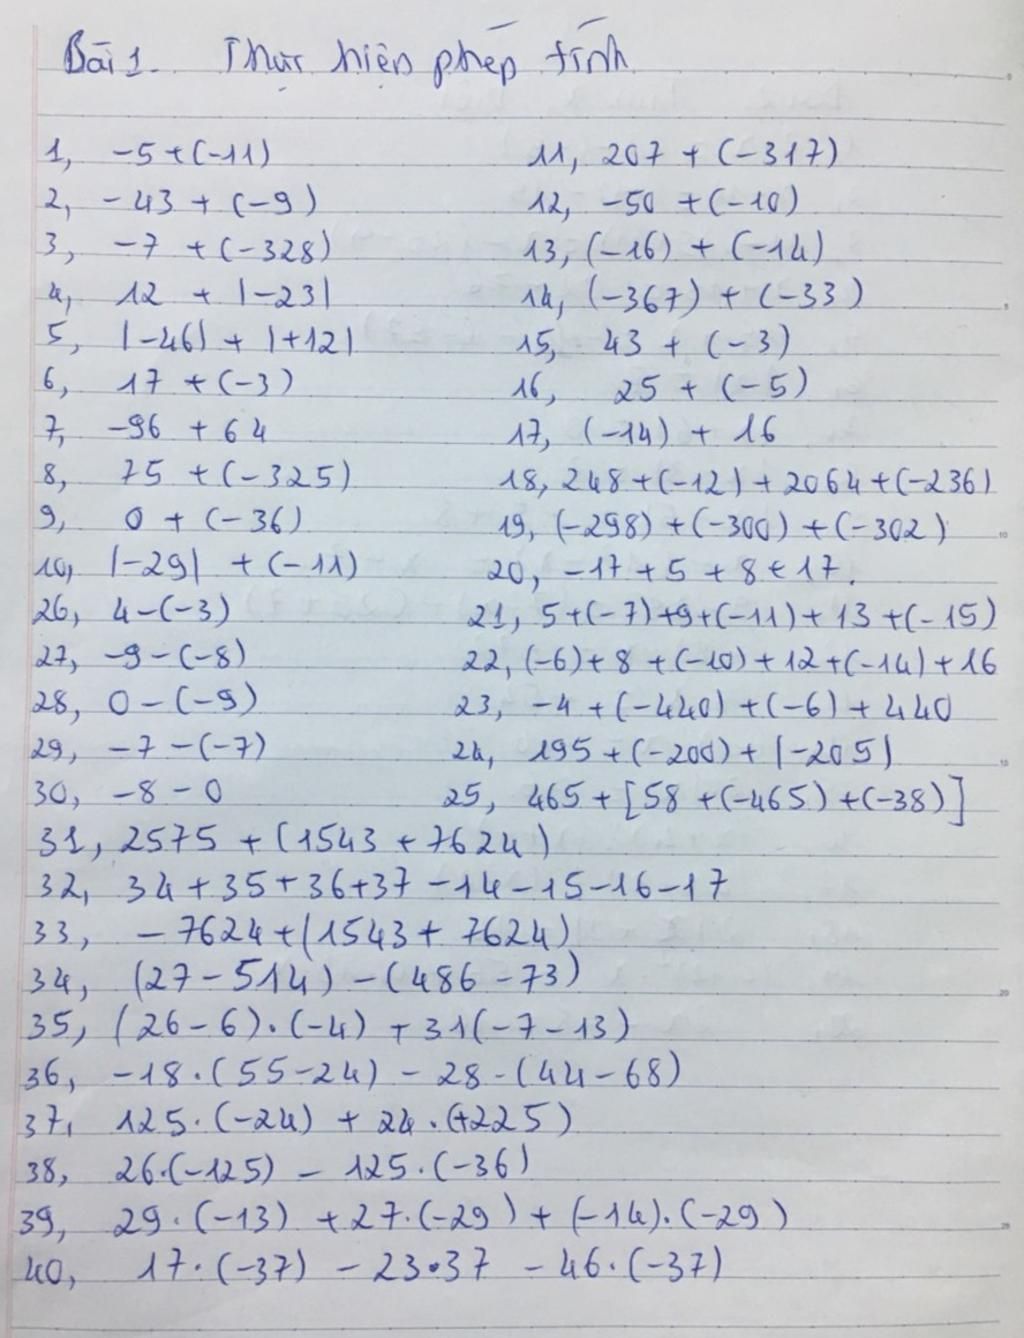 Bài 1. Thực hiện phép tính
1, -5+(-11)
2, -43 + (-9)
3, -7 + (-328)
4, 12 + |-23|
5, |-46| + |+12|
6, 17 + (-3)
7, -96 + 64
8, 75 + (-325)
9, 0 + (-36)
10, |-29| + (-11)
26, 4-(-3)
27, -9-(-8)
28, 0-(-9)
29, -7-(-7)
30, -8-0
11, 207 + (-317)
12, -50 + (-10)
13, (-16) + (-14)
14, (-367) + (-33)
15, 43 + (-3)
16, 25 + (-5)
17, (-14) + 16
18, 248+(-12)+2064+(-236)
19, (-298)+(-300)+(-302)
20, -17+5+8+17.
21, 5+(-7)+9+(-11)+13+(-15)
22, (-6)+8+(-10)+12+(-14)+16
23, -4+(-440)+(-6)+440
24, 195+(-200)+|-205|
25, 465+[58+(-465)+(-38)]
31, 2575+(1543+7624)
32, 34+35+36+37-14-15-16-17
33, -7624+(1543+7624)
34, (27-514)-(486-73)
35, (26-6).(-4)+31(-7-13)
36, -18.(55-24)-28.(44-68)
37, 125.(-24)+24.(+225)
38, 26.(-125)-125.(-36)
39, 29.(-13)+27.(-29)+(-14).(-29)
40, 17.(-37)-23.37-46.(-37)